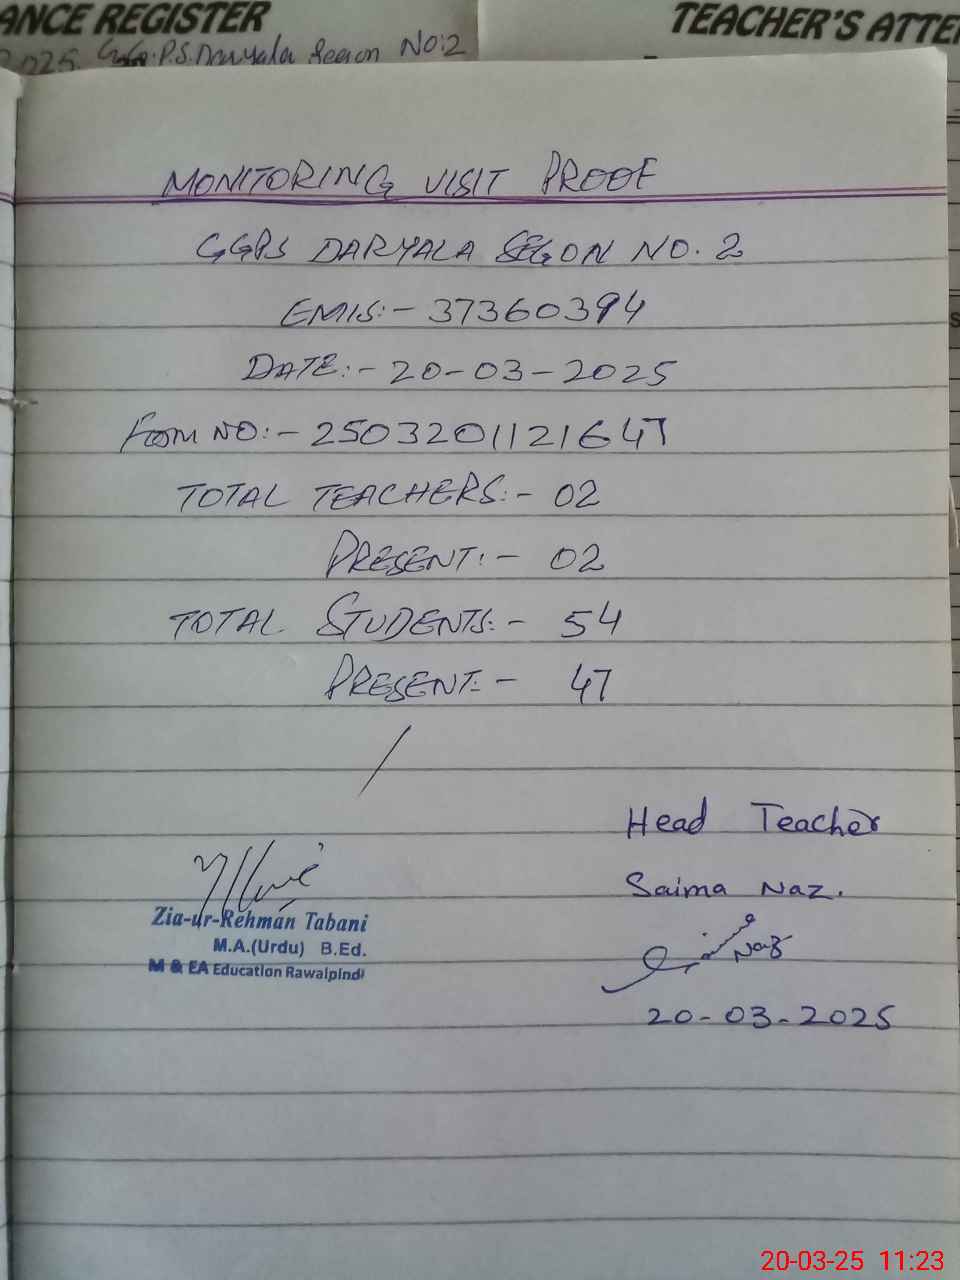 ANCE REGISTER
TEACHER'S ATTE
2025 G.G.P.S. Daryala Segon No:2
MONITORING VISIT PROOF
GGPS DARYALA SEGON NO. 2
EMIS:- 37360394
DATE:- 20-03-2025
Form NO:- 2503201121647
TOTAL TEACHERS:- 02
PRESENT:- 02
TOTAL STUDENTS:- 54
PRESENT:- 47
Head Teacher
Saima Naz.
Zia-ur-Rehman Tabani
M.A.(Urdu) B.Ed.
M & EA Education Rawalpindi
Naz
20-03-2025
20-03-25 11:23